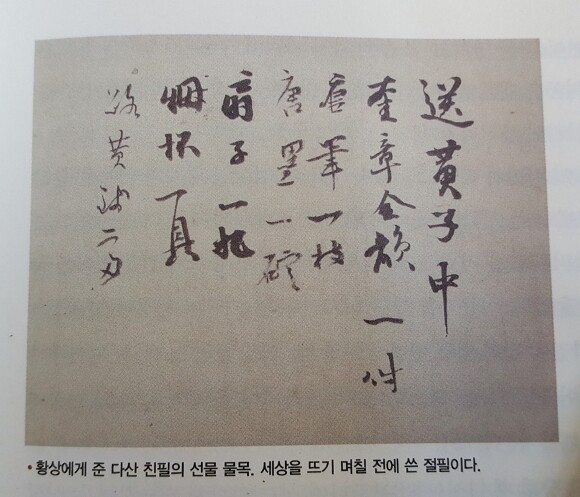 送黃子中
奎章全韻 一件
唐筆一枝
唐墨一碇
扇子一把
烟杯一具
路費錢二兩
•황상에게 준 다산 친필의 선물 물목. 세상을 뜨기 며칠 전에 쓴 절필이다.